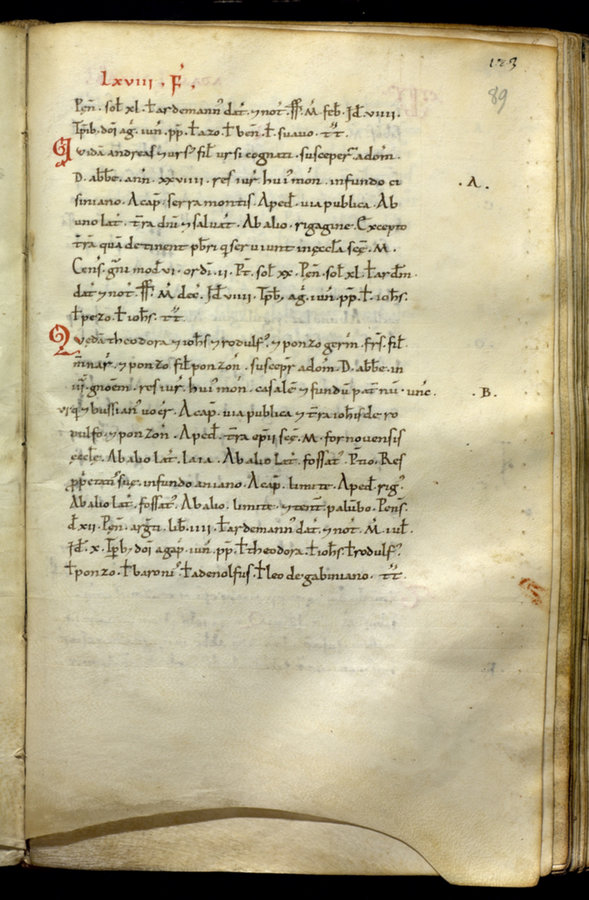 123
89
Lxviii . F .
Pen̄ . sol̄ xl . ł ardemann᾽ dat̄ . ⁊ not̄ . M̄ . feb̄ . Id̄ . viiii .
Tp̄ib . doī aḡ . iun̄ . pp̄ . ł azo . ł ben̄ . ł . suauo . t̄t .
Quidā andreas ⁊ urs᾽ fil̄ ursi cognati . susceper̄ a dom̄ .
D . abb̄e . ann̄ . xxviiii . res iur̄ . hui᾽ mon̄ . infundo ci
siniano . A cap̄ . serra montis . A ped̄ . uia publica . Ab
uno lat̄ . tr̄a dn̄i ⁊ saluat̄ . Ab alio . rigagine . Excepto
tr̄a quā detinent p̄bri q̄ seruiunt in ęccl̄a sc̄ę . M .
Cens̄ . gn̄i mod̄ vi . ordi . ii . Pt̄ . sol̄ xx . Pen̄ . sol̄ xl . ł ard̄m .
dat̄ ⁊ not̄ . M̄ dec̄ . Id̄ viiii . Tp̄ib . aḡ . iun̄ . pp̄ . ł . ioh̄s .
ł pezo . ł ioh̄s . t̄t .
Quedā theodora ⁊ ioh̄s ⁊ rodulf᾽ . ⁊ ponzo germ̄ . fr̄s . fil̄
⁊ ponzo fil̄ ponzon̄ . suscepr̄ a dom̄ . D . abb̄e . in
iii᾽ . gnoēm . res iur̄ . hui᾽ mon̄ . casalē ⁊ fundū p̄at̄nū . unc̄ .
vi q᾽ bussian᾽ uocr̄ . A cap̄ . uia publica ⁊ tr̄a ioh̄is de ro
dulfo ⁊ ponzon̄ . A ped̄ . tr̄a ep̄ii sc̄ę . M . fornouensis
ęccl̄e . Ab alio lat̄ . lata . Ab alio lat̄ . fossat᾽ . Ptio . Res
p̄p̄etati᾽ suę . infundo aniano . A cap̄ . limite . A ped̄ . rig᾽ .
Ab alio lat̄ . fossat᾽ . Ab alio . limite ⁊ tent̄ . palūbo . Pens̄ .
d̄ xii . Pen̄ . argn̄ti . lib̄ . iiii . ł ardemann᾽ dat̄ . ⁊ not̄ . M̄ . iul̄ .
Id̄ . x . Tp̄ib . doī agap̄ . iun̄ . pp̄ . ł theodora . ł ioh̄s . ł rodulf᾽ .
ł ponzo . ł baroni᾽ . ł adenolfus . ł leo de gabiniano . t̄t .
. A .
. B .